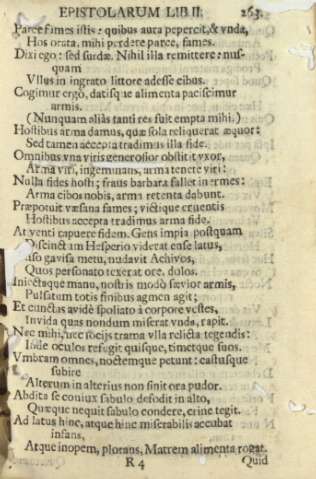 EPISTOLARUM LIB II. 263.
Parce fames istis: quibus aura pepercit, & vnda,
Hos orata mihi perdere parce, fames.
Dixi ego: sed surdæ. Nihil illa remittere: nus-
quam
Vllus in ingrato littore adesse cibus.
Cogimur ergò, datisque alimenta paciscimur
armis.
(Nunquam aliàs tanti res fuit empta mihi.)
Hostibus arma damus, quæ sola reliquerat æquor:
Sed tamen accepta tradimus illa fide.
Omnibus vna viris generosior obstitit vxor,
Arma viri, ingeminans, arma tenete viri:
Nulla fides hosti; fraus barbara fallet inermes:
Arma cibos nobis, arma retenta dabunt.
Præpotuit væsana fames; victique cruentis
Hostibus accepta tradimus arma fide.
At venti rapuere fidem. Gens impia postquam
Discinctam Hesperio viderat ense latus,
uso gavisa metu, nudavit Achivos,
Quos personato texerat ore, dolos.
Iniectaque manu, nostris modò sævior armis,
Pulsatum totis finibus agmen agit;
Et cunctas avidè spoliato à corpore vestes,
Invida quas nondum miserat vnda, rapit.
Nec mihi, nec socijs trama vlla relicta tegendis:
Inde oculos refugit quisque, timetque suos.
Vmbram omnes, noctemque petunt: castusque
subire
Alterum in alterius non sinit ora pudor.
Abdita se coniux sabulo defodit in alto,
Quæque nequit sabulo condere, crine tegit.
Ad latus hinc, atque hinc miserabilis accubat
infans,
Atque inopem, plorans, Matrem alimenta rogat.
R 4 Quid